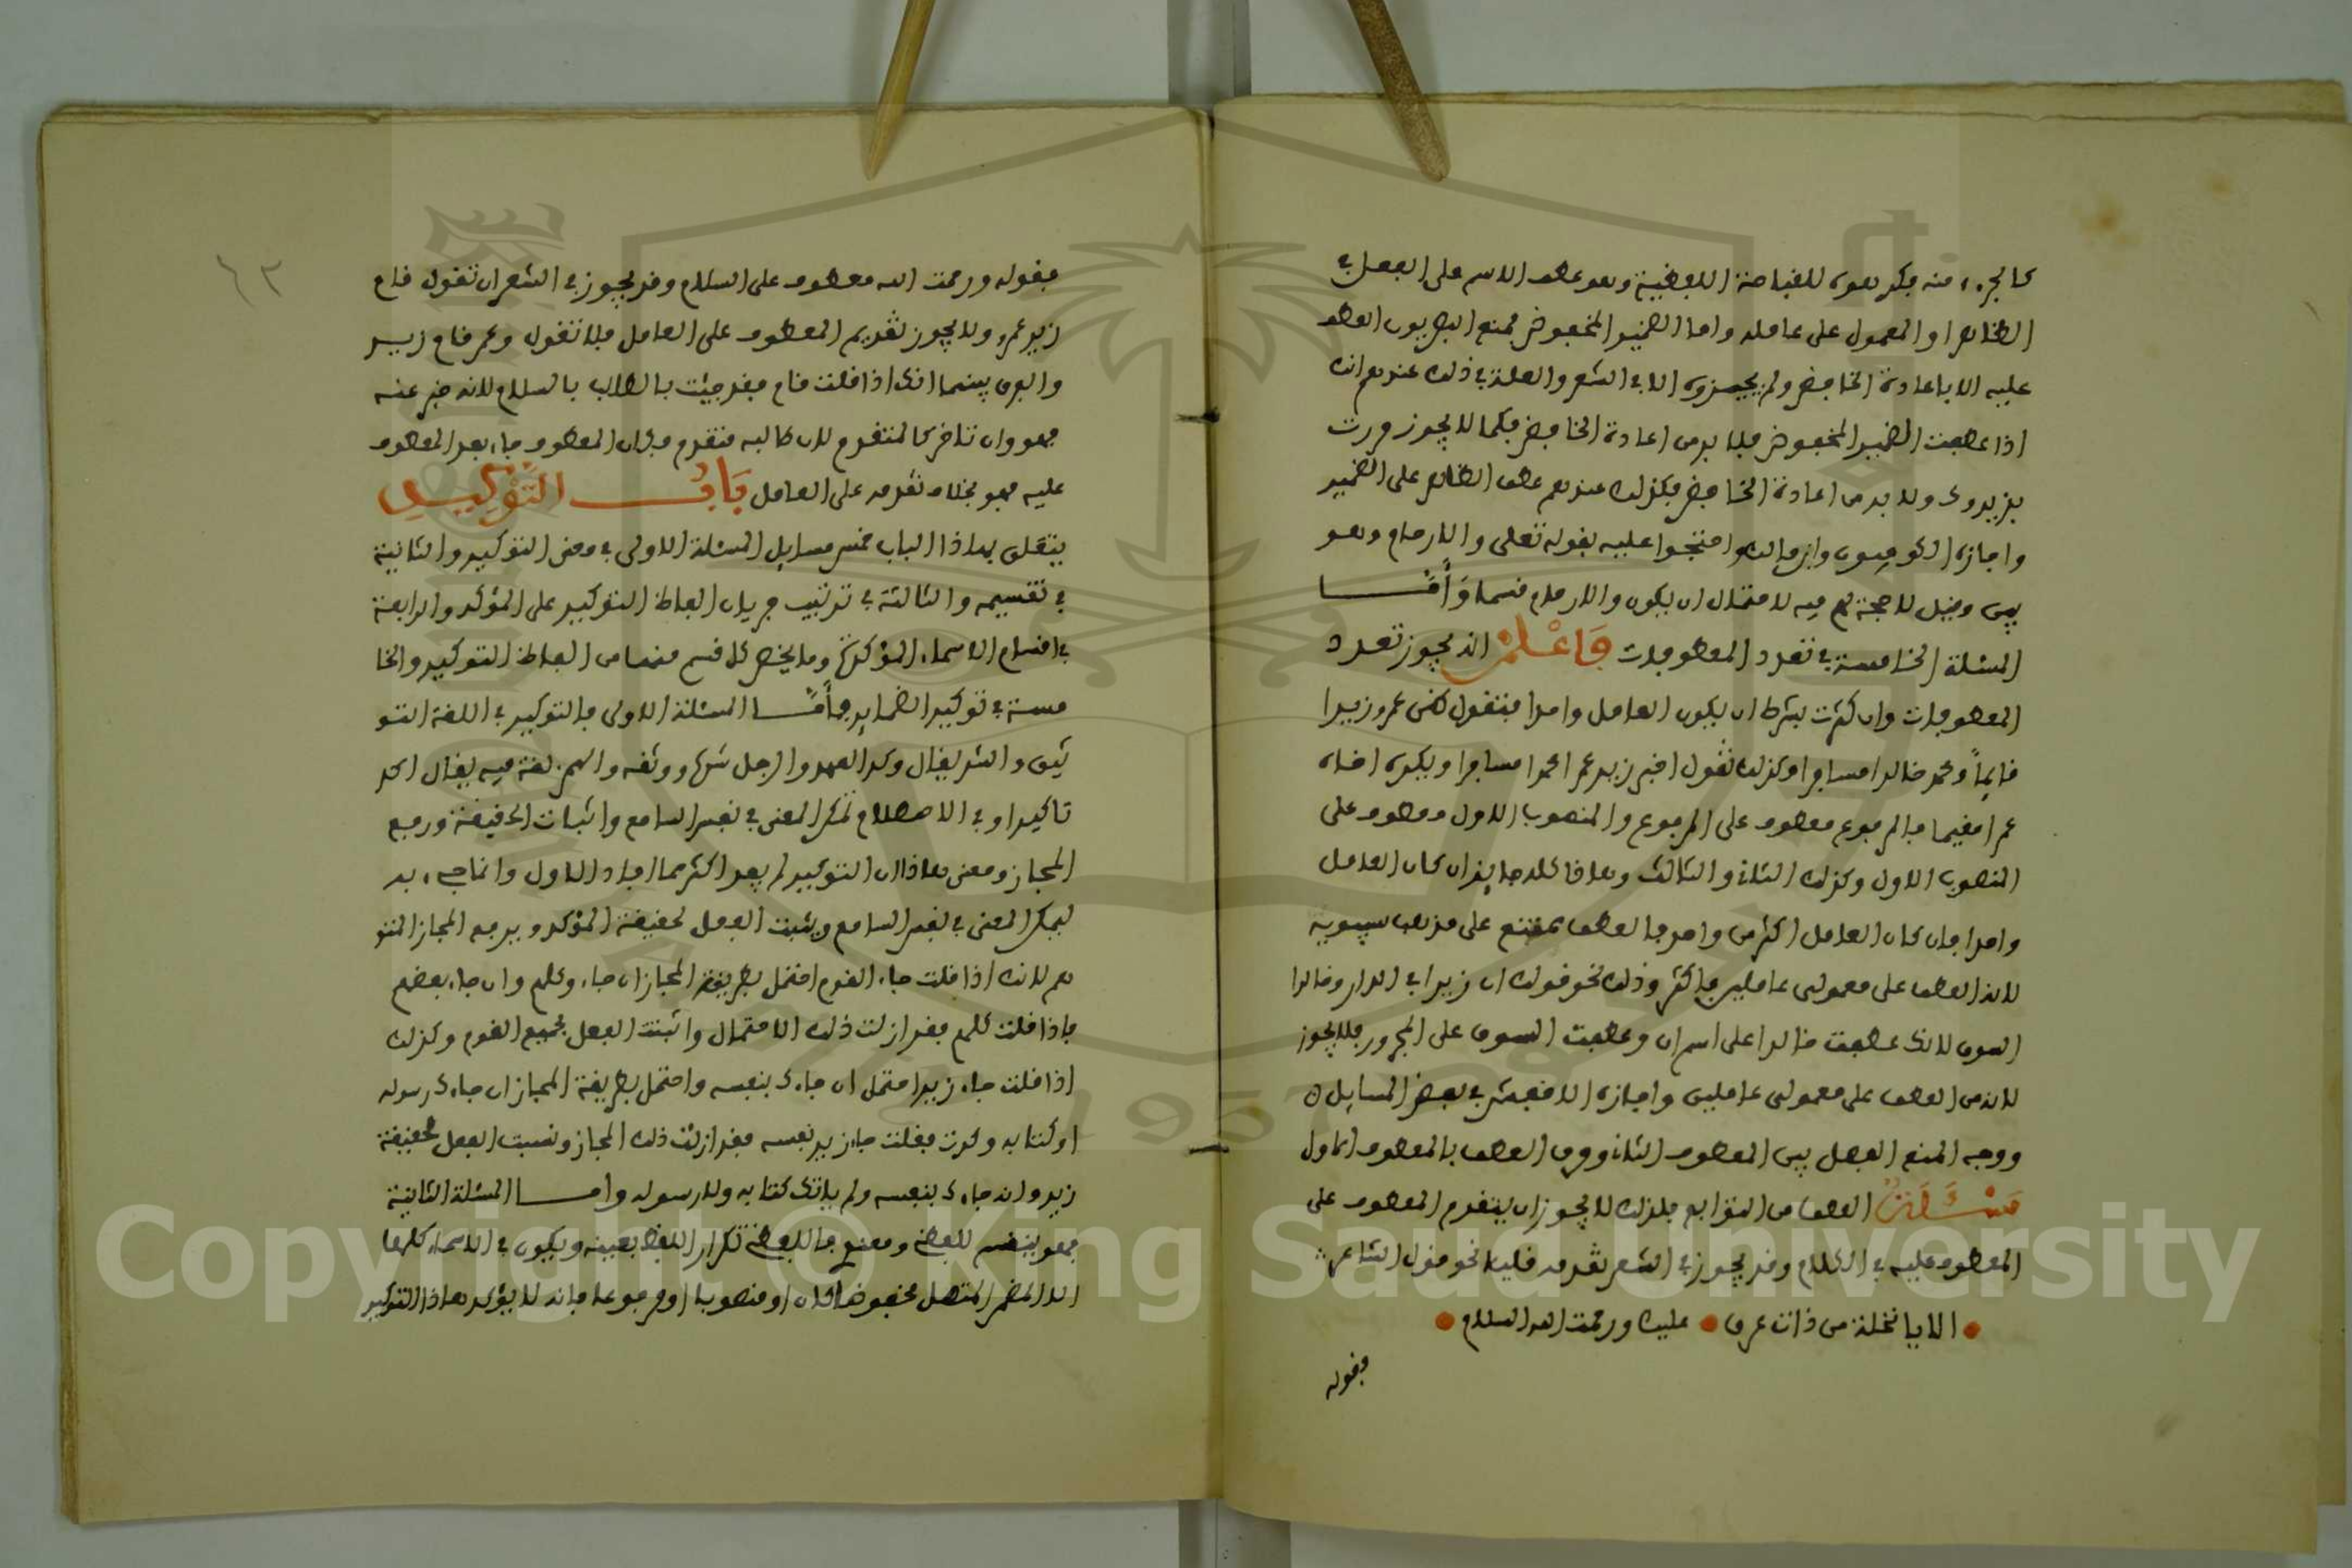 كالجزء منه فكرهوا للقباحة اللفظية وهو عطف الاسم على الفعل في
الظاهر او المعمول على عامله واما الضمير المخفوض فمنع البصريون العطف
عليه الا باعادة الخافض ولم يجيزوه الا في الشعر والعلة في ذلك عندهم انك
اذا عطفت الضمير المخفوض فلا بد من اعادة الخافض فكما لا يجوز مررت
بزيد وك ولا بد من اعادة الخافض فكذلك عندهم عطف الظاهر على الضمير
واجازه الكوفيون وابن مالك واحتجوا عليه بقوله تعلى والارحام وهو
بين وقيل لا حجة لهم فيه لاحتمال ان يكون والارحام قسما وَأَمَّا
المسئلة الخامسة في تعدد المعطوفات فَاعْلَمْ انه يجوز تعدد
المعطوفات وان كثرت بشرط ان يكون العامل واحدا فتقول ظن عمرو زيدا
قايماً ومحمد خالدا مسافرا وكذلك تقول اخبر زيد عمرا محمدا مسافرا وبكر اخاه
عمرا مقيما فالمرفوع معطوف على المرفوع والمنصوب الاول معطوف على
المنصوب الاول وكذلك الثاني والثالث وهاذا كله جايز ان كان العامل
واحدا فان كان العامل اكثر من واحد فالعطف ممتنع على مذهب سيبويه
لانه العطف على معمولي عاملين فاكثر وذلك نحو قولك ان زيدا في الدار وخالدا
السوق لانك عطفت خالدا على اسم ان وعطفت السوق على المجرور فلا يجوز
لانه من العطف على معمولي عاملين واجازه الاخفش في بعض المسايل
ووجه المنع الفصل بين المعطوف الثاني وحرف العطف بالمعطوف الاول
مَسْئَلَةٌ العطف من التوابع فلذلك لا يجوز ان يتقدم المعطوف على
المعطوف عليه في الكلام وقد يجوز في الشعر تقدمه قليلا نحو قول الشاعر
الا يا نخلة من ذات عرق عليك ورحمت الله السلام
فقوله
٦٣
فقوله ورحمت الله معطوف على السلام وقد يجوز في الشعر ان تقول قام
زيد عمرو ولا يجوز تقديم المعطوف على العامل فلا تقول وعمر قام زيد
والفرق بينهما انك اذا قلت قام فقد جيئت بالطالب بالسلام لانه خبر عنه
فهو وان تاخر كالمتقدم لان طالبه متقدم فكان المعطوف جاء بعد المعطوف
عليه فهو بخلاف تقدمه على العامل بَابُ التَّوْكِيدِ
يتعلق بهاذا الباب خمس مسايل المسئلة الاولى في معنى التوكيد والثانية
في تقسيمه والثالثة في ترتيب جريان الفاظ التوكيد على المؤكد والرابعة
في اقسام الاسماء المؤكدة وما يخص كل قسم منها من الفاظ التوكيد والخا
مسة في توكيد الضماير فأَمَّا المسئلة الاولى فالتوكيد في اللغة التو
ثيق والشد يقال وكد العهد والرجل شده ووثقه والهمز لغة فيه يقال اكد
تاكيدا وفي الاصطلاح تمكن المعنى في نفس السامع واثبات الحقيقة ورفع
المجاز ومعنى هاذا ان التوكيد لم يفد اكثر مما افاد الاول وانما جيء به
ليمكن المعنى في نفس السامع ويثبت الفعل لحقيقة المؤكد ويرفع المجاز المتو
هم لانك اذا قلت جاء القوم احتمل بطريقة المجاز ان جاء وكلهم وان جاء بعضهم
فاذا قلت كلهم فقد ازلت ذلك الاحتمال واثبت الفعل لجميع القوم وكذلك
اذا قلت جاء زيد احتمل ان جاءك بنفسه واحتمل بطريقة المجاز ان جاءك رسوله
او كتابه وكررت فقلت جاء زيد نفسه فقد ازلت ذلك المجاز ونسبت الفعل لحقيقة
زيد وانه جاءك بنفسه ولم ياتك كتابه ولا رسوله وأما المسئلة الثانية
فهو ينقسم للفظي ومعنوي فاللفظي تكرار اللفظ بعينه ويكون في الاسماء كلها
الا المضمر المتصل مخفوضا كان او منصوبا او مرفوعا فانه لا يؤكد هاذا التوكيد
Copyright © King Saud University
1957